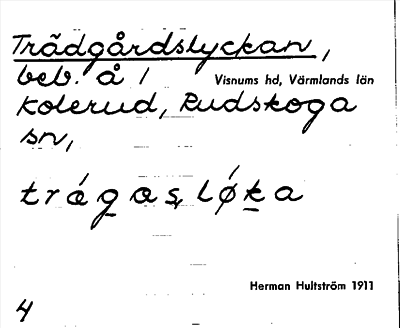 Trädgårdslyckan,
beb. å 1 Visnums hd, Värmlands län
Kolerud, Rudskoga
sn,
trágo̱sløḱa
Herman Hultström 1911
4